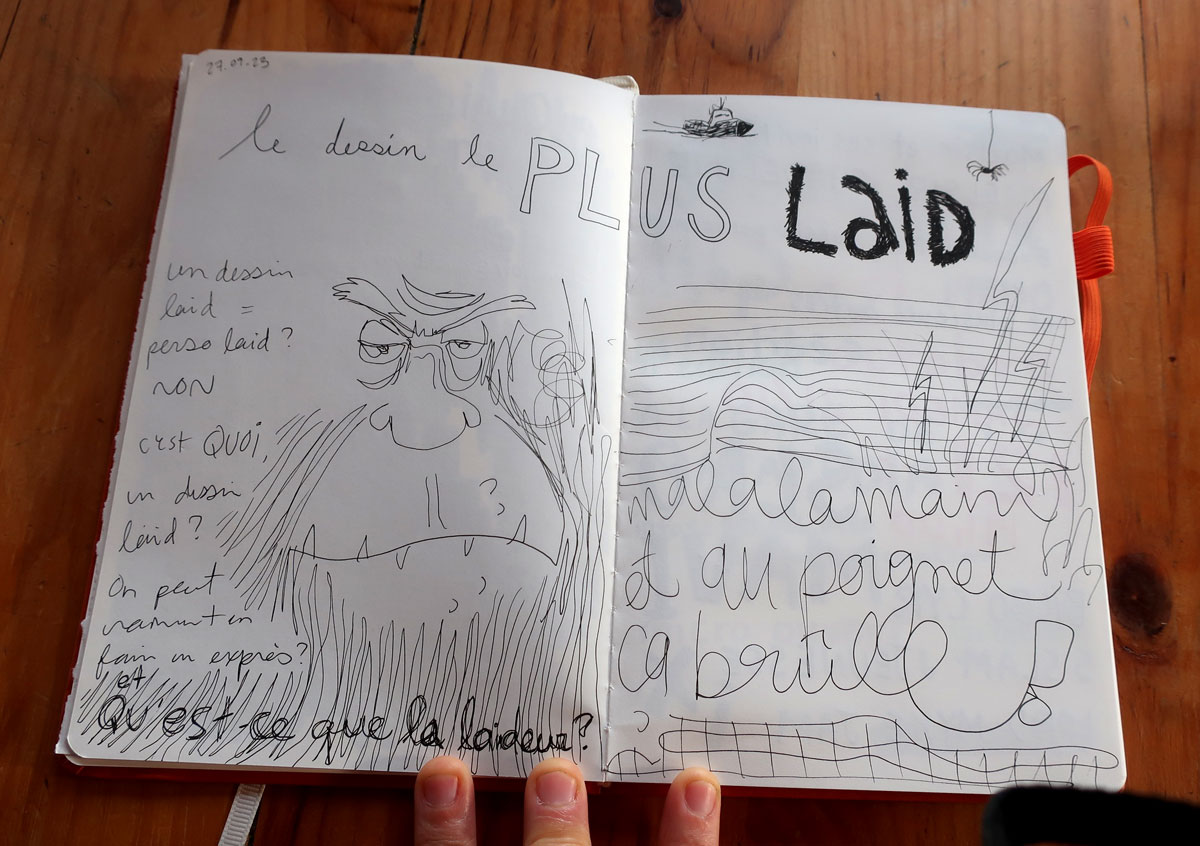 27.01.23
le dessin le PLUS LAiD
un dessin
laid =
perso laid ?
NON
c'est QUOI,
un dessin
laid ?
On peut
vraiment en
faire un exprès ?
et
Qu'est-ce que la laideur ?
mal à la main
et au poignet
ça brûle !